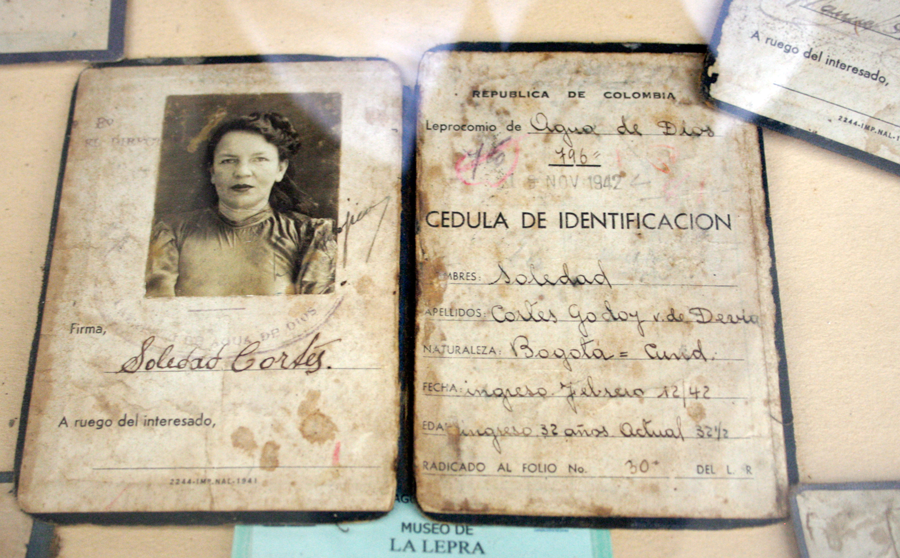 A ruego del interesado,
2244-IMP.NAL-19
DE AGUA DE DIOS
Firma,
Soledad Cortés.
A ruego del interesado,
2244-IMP.NAL-1941
REPUBLICA DE COLOMBIA
Leprocomio de Agua de Dios
796=
NOV 1942
CEDULA DE IDENTIFICACION
MBRES: Soledad
APELLIDOS: Cortés Godoy v. de Devia
NATURALEZA: Bogotá = Cund.
FECHA: ingreso Febrero 12/42
EDAD ingreso 32 años Actual 32 1/2
RADICADO AL FOLIO No. 30 DEL L R
MUSEO DE
LA LEPRA